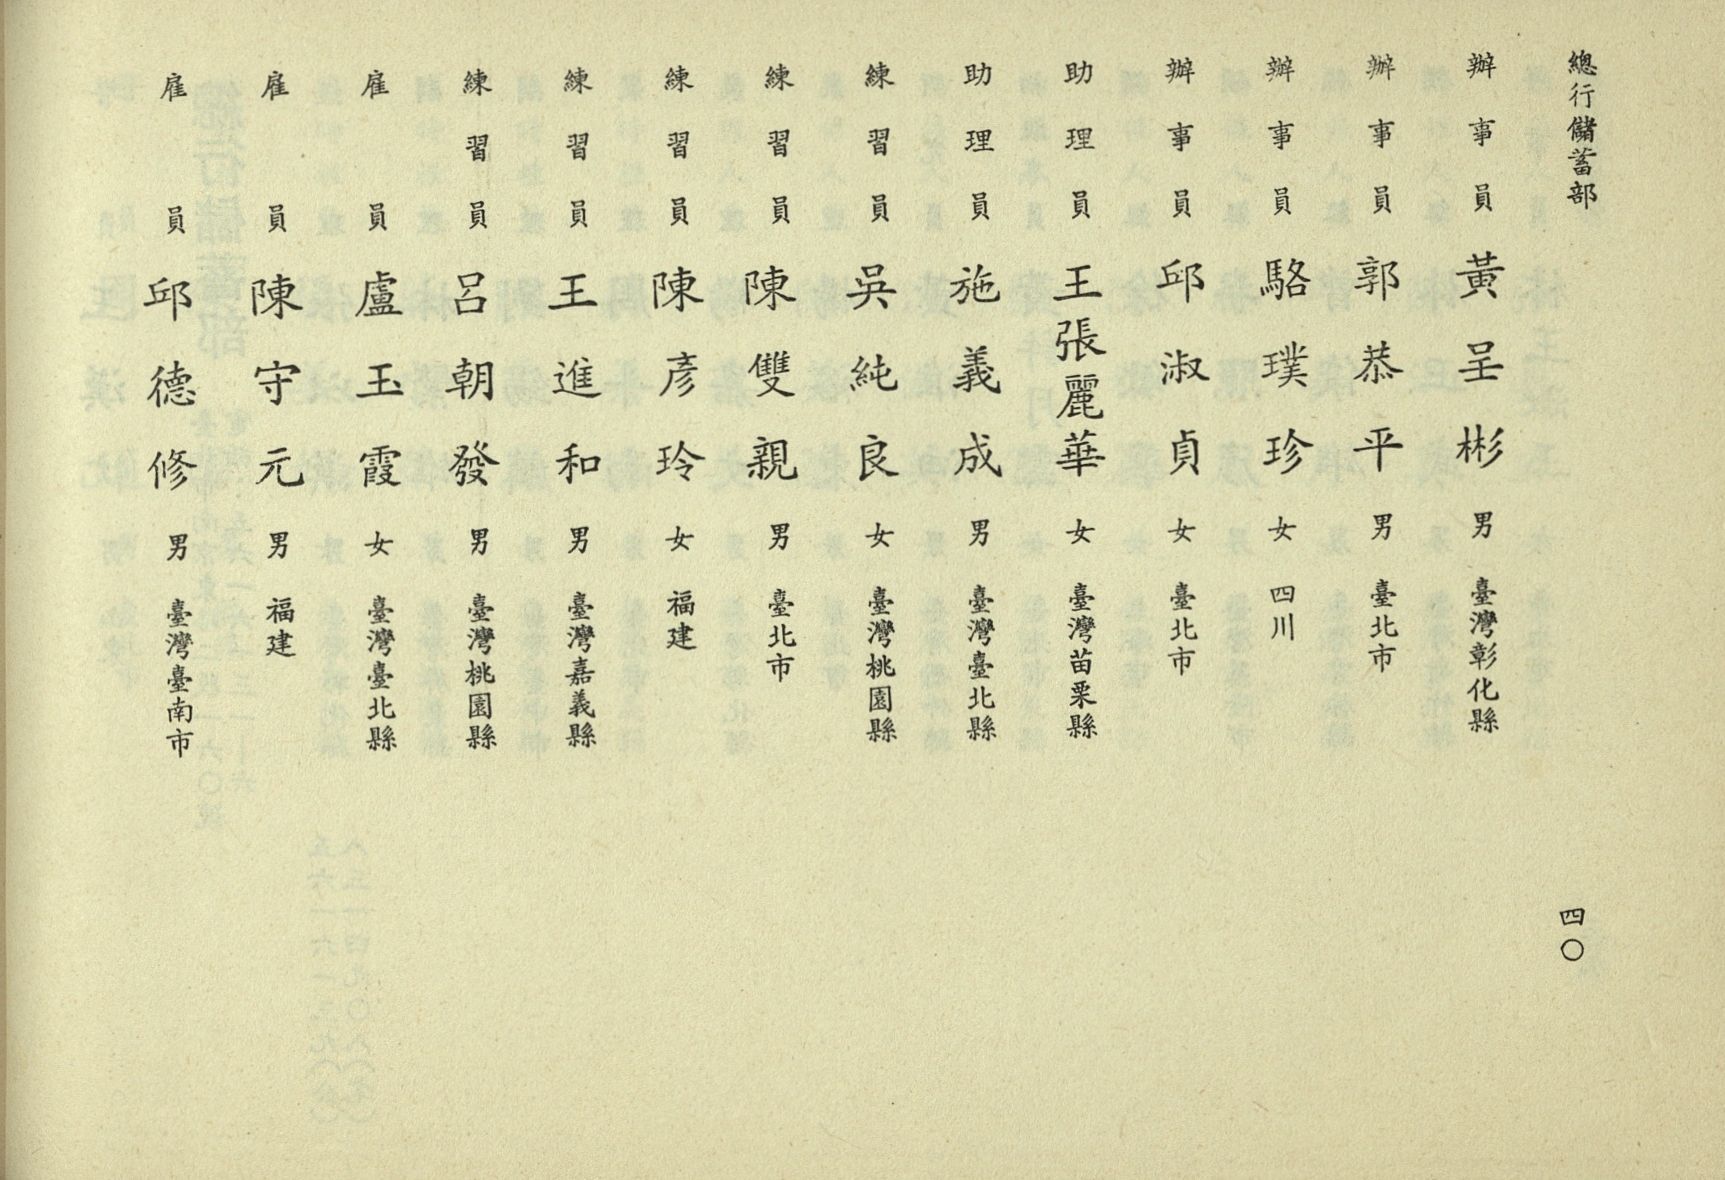 總行儲蓄部
四〇
辦事員 黃呈彬 男 臺灣彰化縣
辦事員 郭恭平 男 臺北市
辦事員 駱璞珍 女 四川
辦事員 邱淑貞 女 臺北市
助理員 王張麗華 女 臺灣苗栗縣
助理員 施義成 男 臺灣臺北縣
練習員 吳純良 女 臺灣桃園縣
練習員 陳雙親 男 臺北市
練習員 陳彥玲 女 福建
練習員 王進和 男 臺灣嘉義縣
練習員 呂朝發 男 臺灣桃園縣
雇員 盧玉霞 女 臺灣臺北縣
雇員 陳守元 男 福建
雇員 邱德修 男 臺灣臺南市